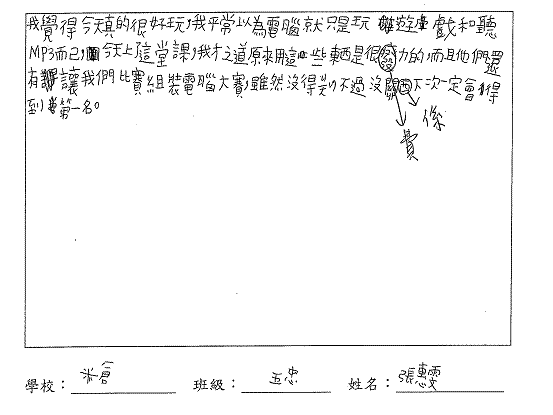 我覺得今天真的很好玩,我平常以為電腦就只是玩遊戲和聽
MP3而已,今天上這堂課,我才之道原來用這些東西是很發力的,而且他們還
有讓我們比賽組裝電腦大賽,雖然沒得獎,不過沒關西下次一定會得
到第一名。
係
費
學校:米倉 班級:五忠 姓名:張惠雯